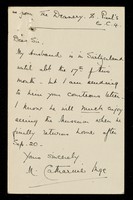 from The Deanery, St Paul's
E.C.4
Dear Sir,
My husband is in Switzerland
until abt the 17th of this
month - but I am sending
to him your courteous letter
I know he will much enjoy
seeing the Museum when he
finally returns home after
Sep. 20.
Yours sincerely
M. Catharine Inge